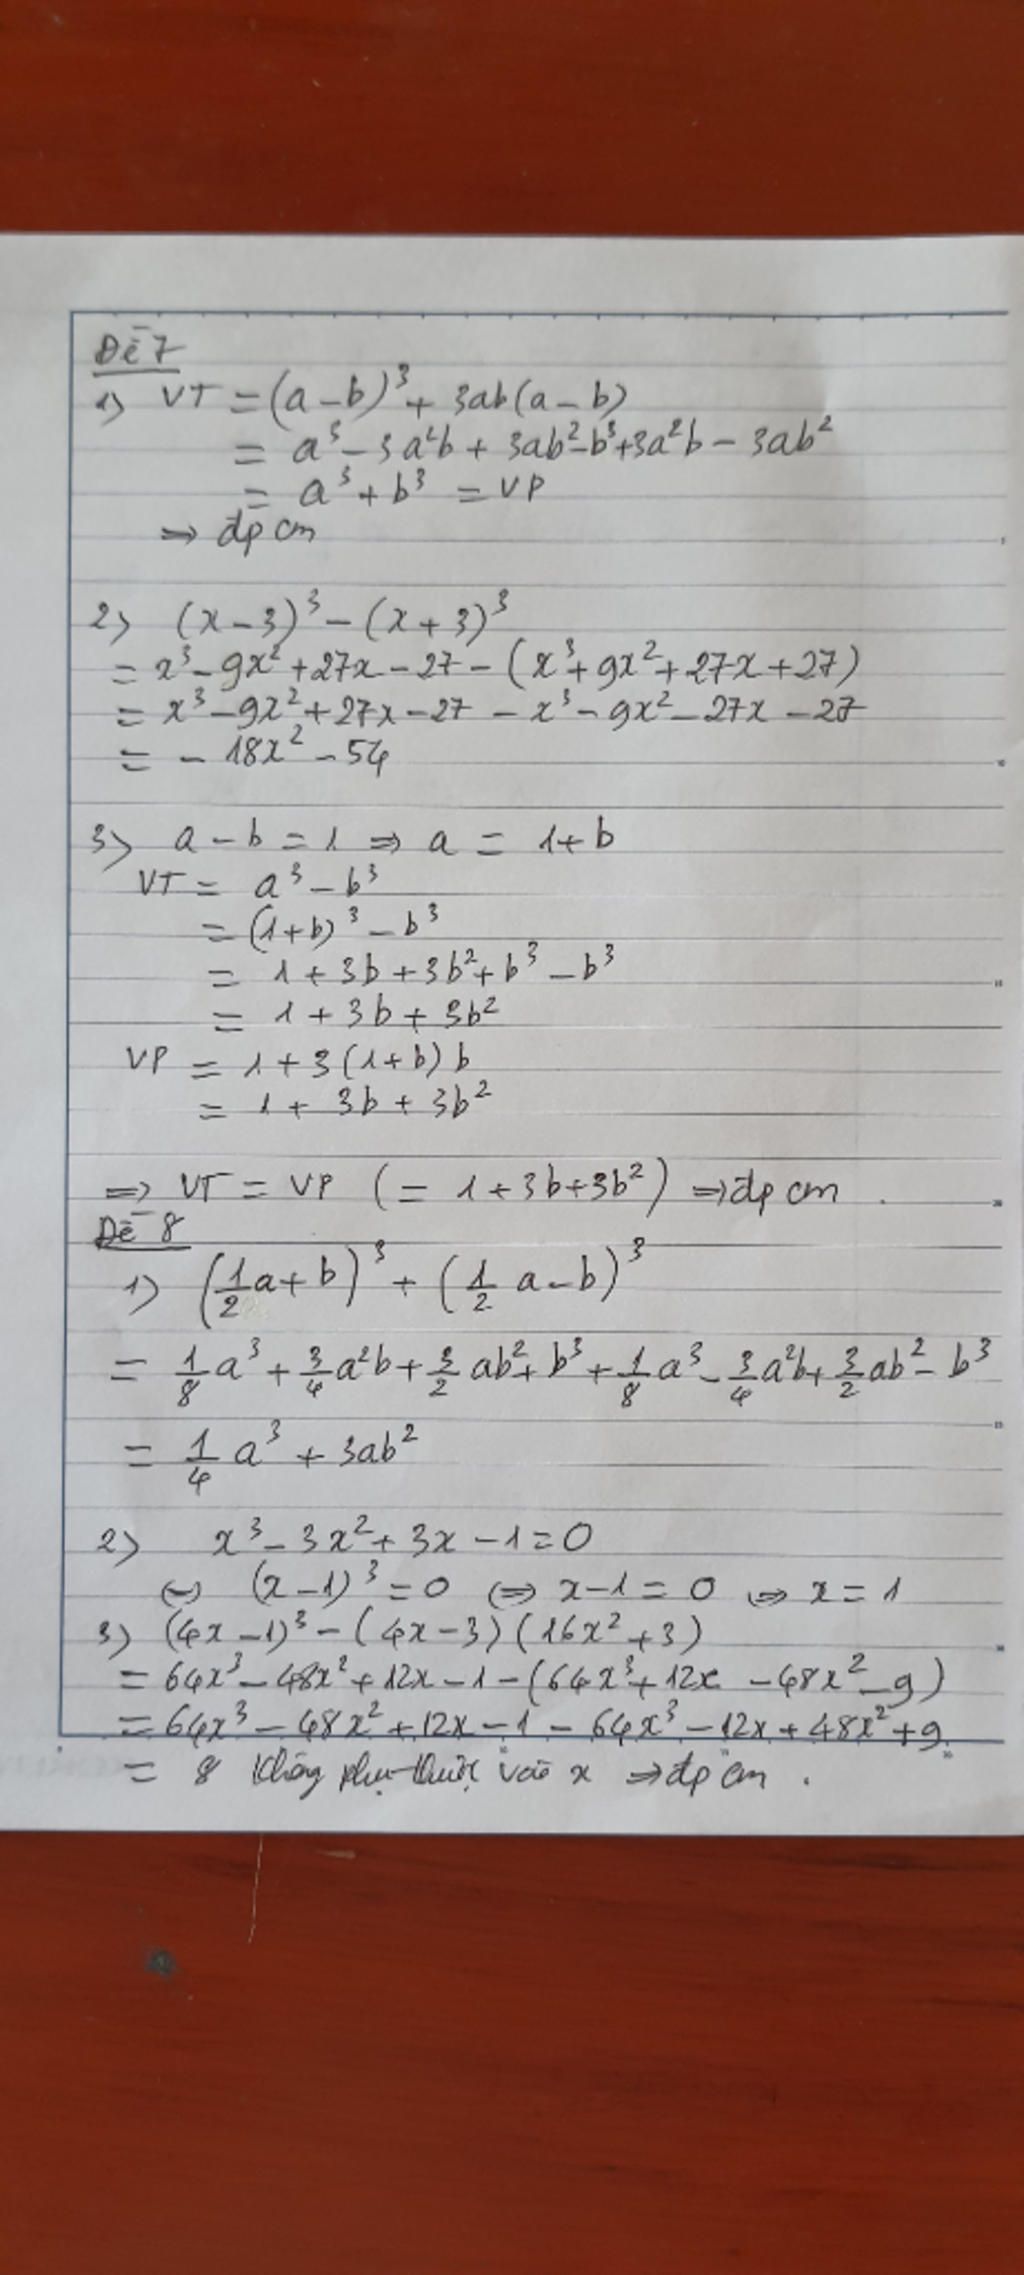 Đề 7
1) VT = (a-b)³ + 3ab(a-b)
= a³ - 3a²b + 3ab² - b³ + 3a²b - 3ab²
= a³ + b³ = VP
⇒ đpcm
2) (x-3)³ - (x+3)³
= x³ - 9x² + 27x - 27 - (x³ + 9x² + 27x + 27)
= x³ - 9x² + 27x - 27 - x³ - 9x² - 27x - 27
= - 18x² - 54
3) a - b = 1 ⇒ a = 1 + b
VT = a³ - b³
= (1+b)³ - b³
= 1 + 3b + 3b² + b³ - b³
= 1 + 3b + 3b²
VP = 1 + 3(1+b)b
= 1 + 3b + 3b²
⇒ VT = VP (= 1 + 3b + 3b²) ⇒ đpcm.
Đề 8
1) (1/2 a + b)³ + (1/2 a - b)³
= 1/8 a³ + 3/4 a²b + 3/2 ab² + b³ + 1/8 a³ - 3/4 a²b + 3/2 ab² - b³
= 1/4 a³ + 3ab²
2) x³ - 3x² + 3x - 1 = 0
⇔ (x-1)³ = 0 ⇔ x - 1 = 0 ⇔ x = 1
3) (4x-1)³ - (4x-3)(16x²+3)
= 64x³ - 48x² + 12x - 1 - (64x³ + 12x - 48x² - 9)
= 64x³ - 48x² + 12x - 1 - 64x³ - 12x + 48x² + 9
= 8 không phụ thuộc vào x ⇒ đpcm.